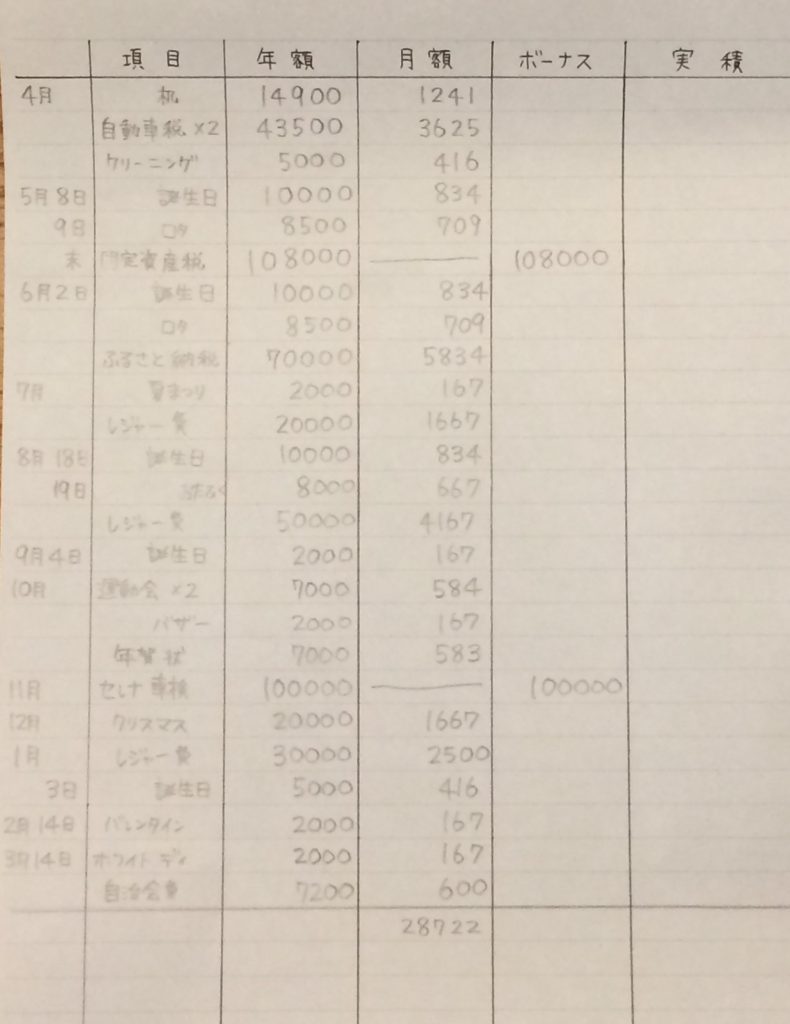 項目 年額 月額 ボーナス 実積
4月 机 14900 1241
自動車税×2 43500 3625
クリーニング 5000 416
5月8日 誕生日 10000 834
9日 ロタ 8500 709
末 固定資産税 108000 108000
6月2日 誕生日 10000 834
ロタ 8500 709
ふるさと納税 70000 5834
7月 夏まつり 2000 167
レジャー費 20000 1667
8月18日 誕生日 10000 834
19日 8000 667
レジャー費 50000 4167
9月4日 誕生日 2000 167
10月 運動会×2 7000 584
バザー 2000 167
年賀状 7000 583
11月 セレナ車検 100000 100000
12月 クリスマス 20000 1667
1月 レジャー費 30000 2500
3日 誕生日 5000 416
2月14日 バレンタイン 2000 167
3月14日 ホワイトディ 2000 167
自治会費 7200 600
28722